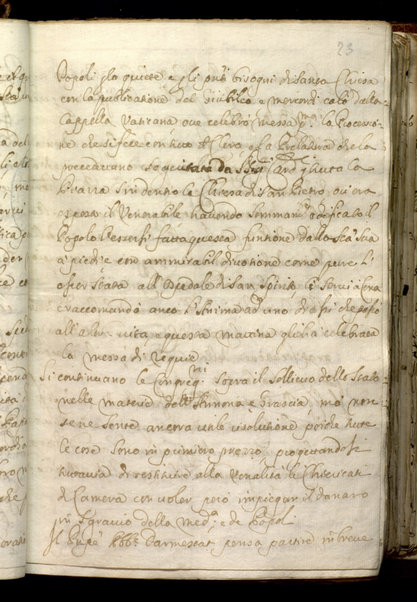 23
Popoli p la quiete e gli pnti bisogni di Santa Chiesa
con la publicatione del Giubileo e mercordi calò dalla
Cappella Vaticana ove celebrò messa la Processio
ne che si fece con tutto il Clero e la Prelatura che la
precedevano seguitata da SSri Card p tutta la
Piazza sin dentro la Chiesa di San Pietro ov'era
esposto il Venerabile havendo sommam edificato il
Popolo essersi fatta questa funtione dalla Sta Sua
a piedi e con ammirabil divotione come pure l'
esser stata all' Ospedale di San Spirito
raccomandò anco l'Anima ad uno di essi che passò
all'altra vita e questa matina gli ha celebrata
la messa di Requie
Si continuano le sopra il sollievo dello Stato
nelle materie dell' Annona e Grascia, mà non
se ne sente ancora utile risolutione poiche tutte
le cose sono in primiero prezzo, progettandosi
tuttavia di restituire alla Venalità li Chiericati
di Camera con voler però impiegare il danaro
in sgravio della Med: e de Popoli
Il Darmestat pensa partire in breve